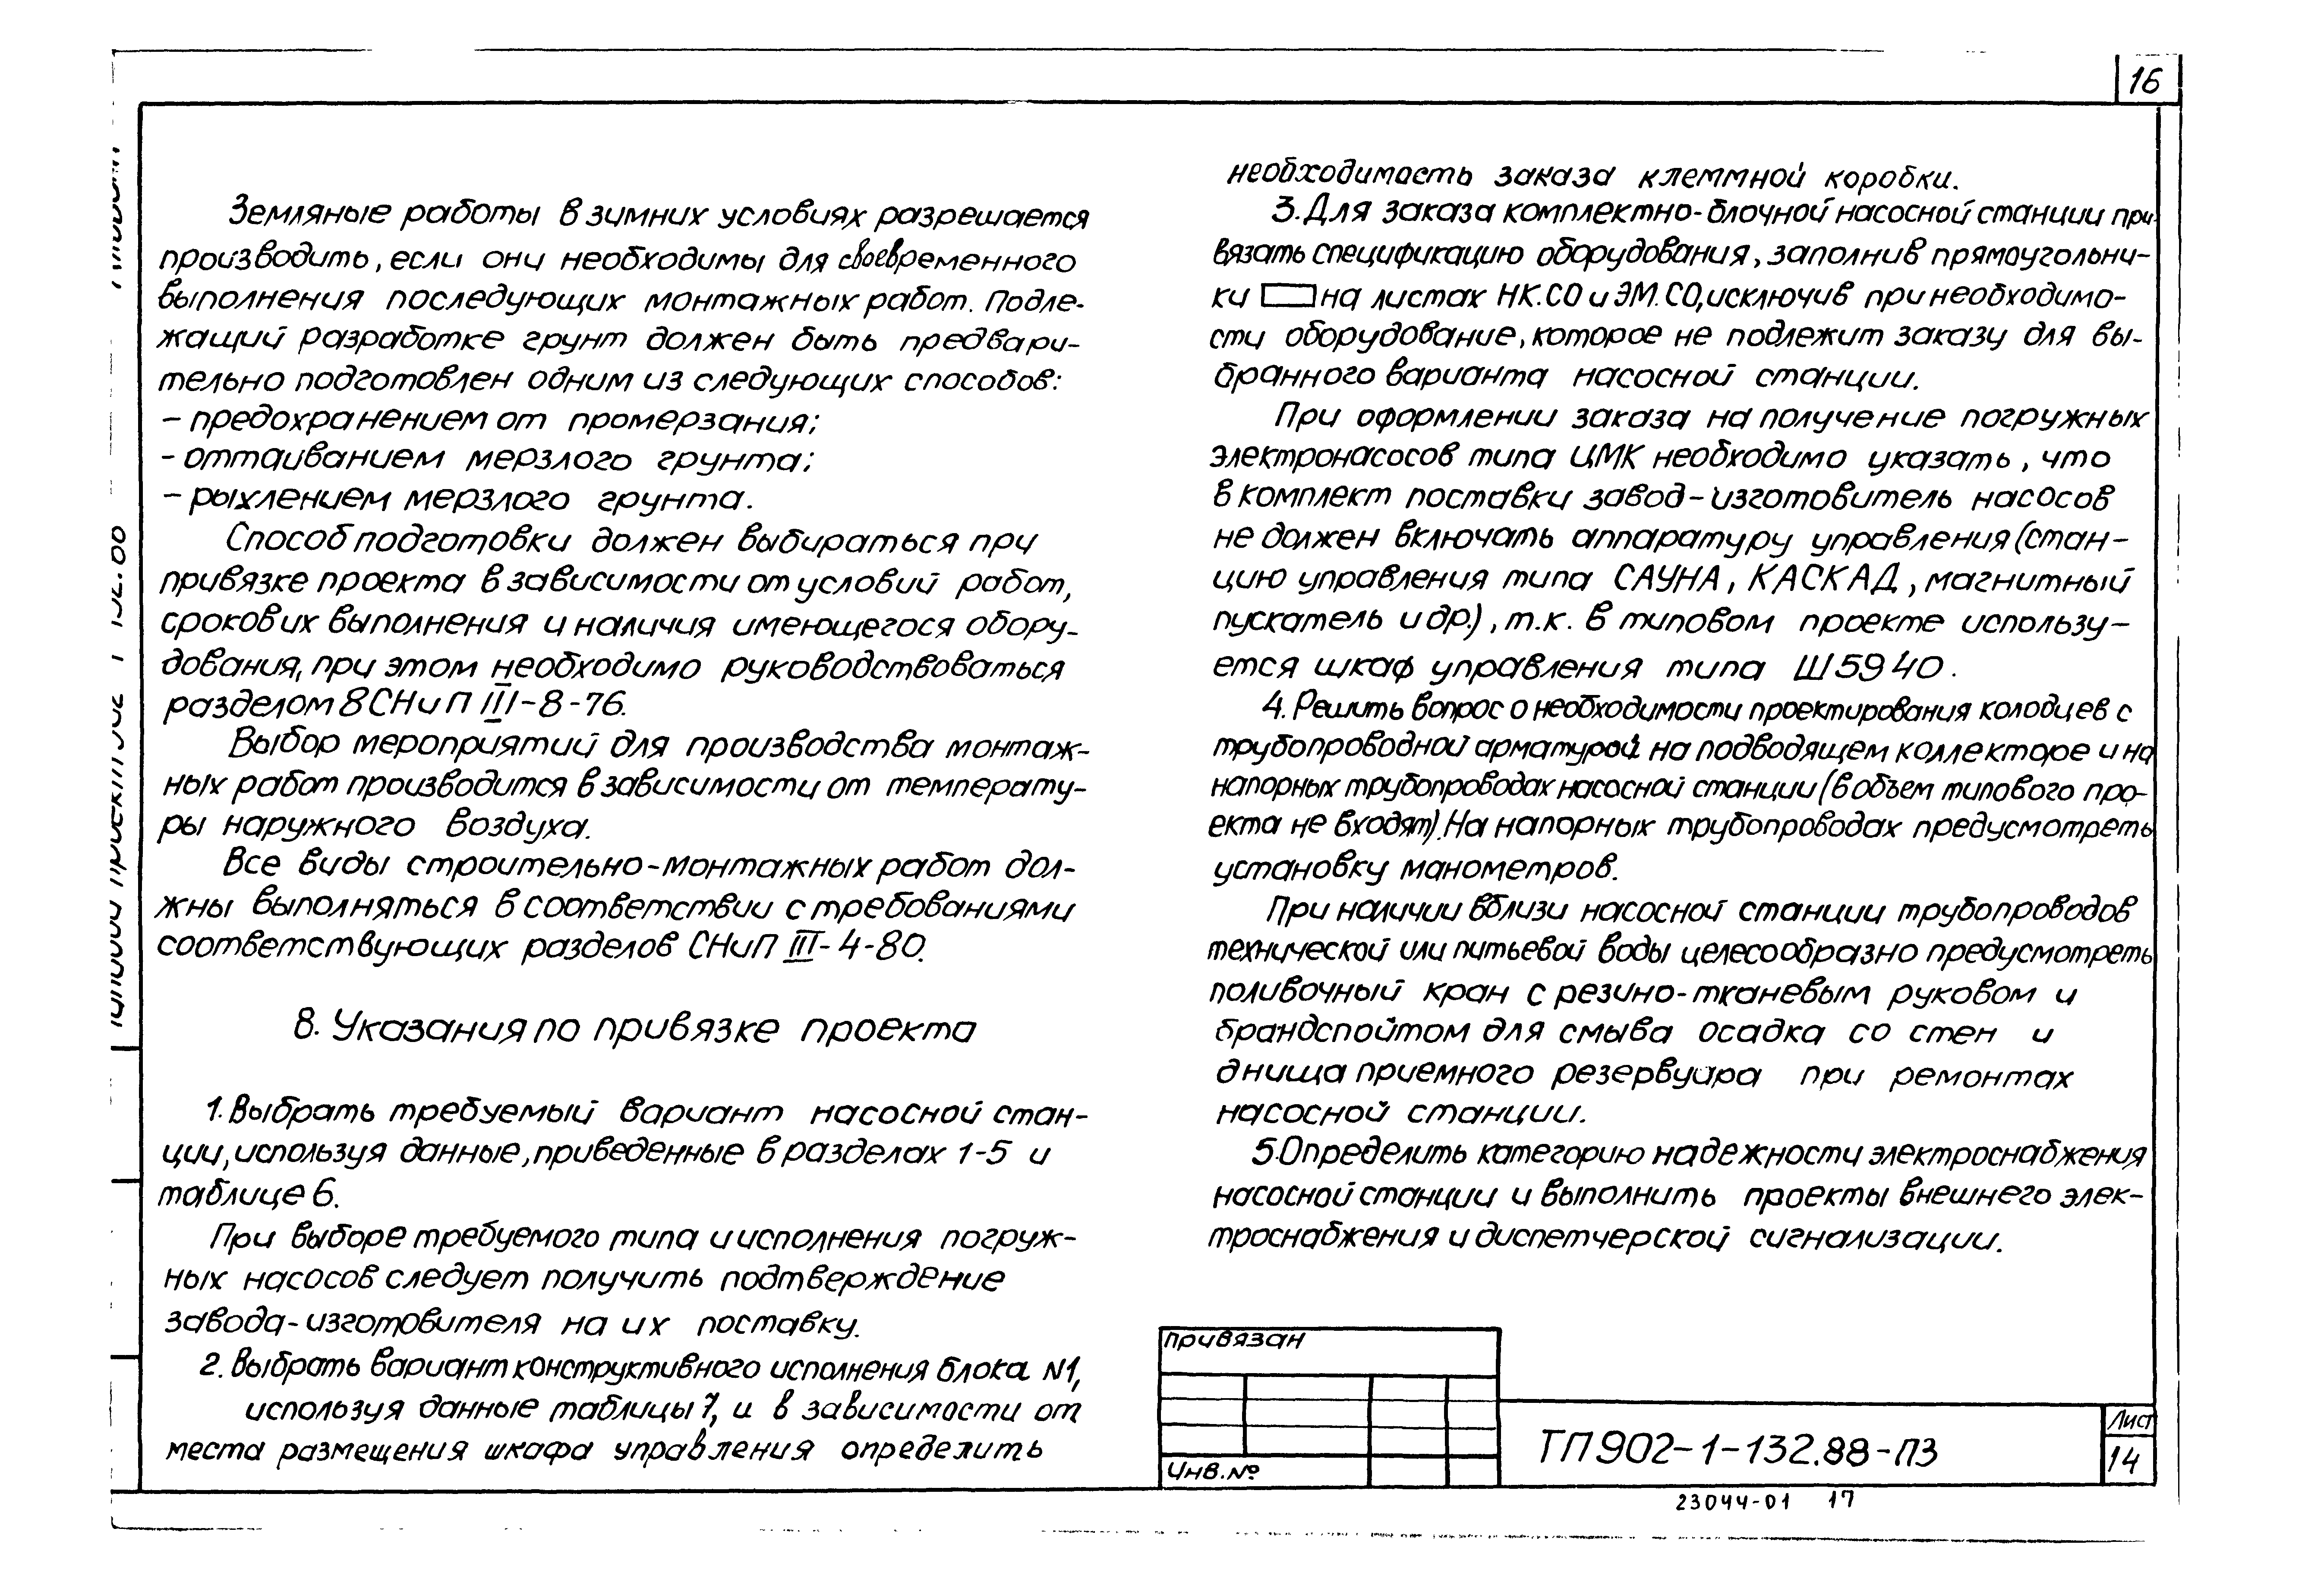 16
Земляные работы в зимних условиях разрешается
производить, если они необходимы для своевременного
выполнения последующих монтажных работ. Подле-
жащий разработке грунт должен быть предвари-
тельно подготовлен одним из следующих способов:
– предохранением от промерзания;
- оттаиванием мерзлого грунта;
– рыхлением мерзлого грунта.
Способ подготовки должен выбираться при
привязке проекта в зависимости от условий работ,
сроков их выполнения и наличия имеющегося обору-
дования, при этом необходимо руководствоваться
разделом 8 СНиП III-8-76.
Выбор мероприятий для производства монтаж-
ных работ производится в зависимости от температу-
ры наружного воздуха.
Все виды строительно-монтажных работ дол-
жны выполняться в соответствии с требованиями
соответствующих разделов СНиП III-4-80.
8. Указания по привязке проекта
1. Выбрать требуемый вариант насосной стан-
ции, используя данные, приведенные в разделах 1-5 и
таблице 6.
При выборе требуемого типа и исполнения погруж-
ных насосов следует получить подтверждение
завода-изготовителя на их поставку.
2. Выбрать вариант конструктивного исполнения блока N1,
используя данные таблицы 7, и в зависимости от
места размещения шкафа управления определить
необходимость заказа клеммной коробки.
3. Для заказа комплектно-блочной насосной станции при-
вязать спецификацию оборудования, заполнив прямоугольни-
ки на листах НК.СО и ЭМ.СО, исключив при необходимо-
сти оборудование, которое не подлежит заказу для вы-
бранного варианта насосной станции.
При оформлении заказа на получение погружных
электронасосов типа ЦМК необходимо указать, что
в комплект поставки завод-изготовитель насосов
не должен включать аппаратуру управления (стан-
цию управления типа САУНА, КАСКАД, магнитный
пускатель и др.), т.к. в типовом проекте использу-
ется шкаф управления типа Ш5940.
4. Решить вопрос о необходимости проектирования колодцев с
трубопроводной арматурой на подводящем коллекторе и на
напорных трубопроводах насосной станции (в объем типового про-
екта не входят). На напорных трубопроводах предусмотреть
установку манометров.
При наличии вблизи насосной станции трубопроводов
технической или питьевой воды целесообразно предусмотреть
поливочный кран с резино-тканевым руковом и
брандспойтом для смыва осадка со стен и
днища приемного резервуара при ремонтах
насосной станции.
5. Определить категорию надежности электроснабжения
насосной станции и выполнить проекты внешнего элек-
троснабжения и диспетчерской сигнализации.
Привязан
Инв. №
ТП 902-1-132.88-ПЗ
Лист
14
23044-01 17